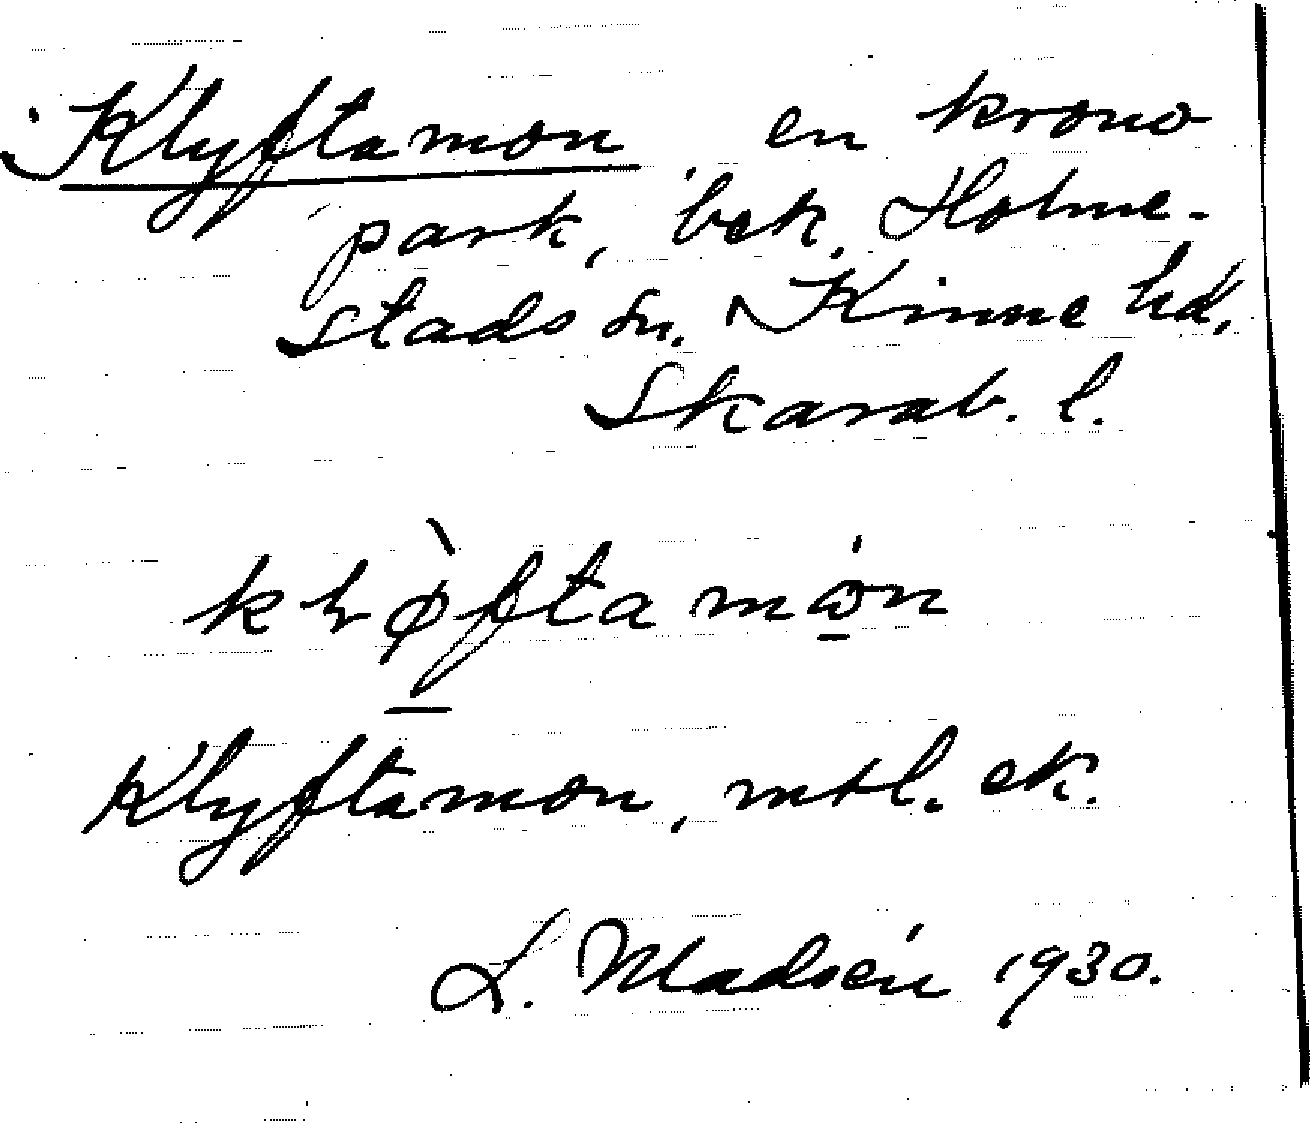 Klyftamon, en krono
park, bek. Holme-
stads sn. Kinne hd,
Skarab. l.
Klyftamon, mtl. ek.
L. Madsén 1930.